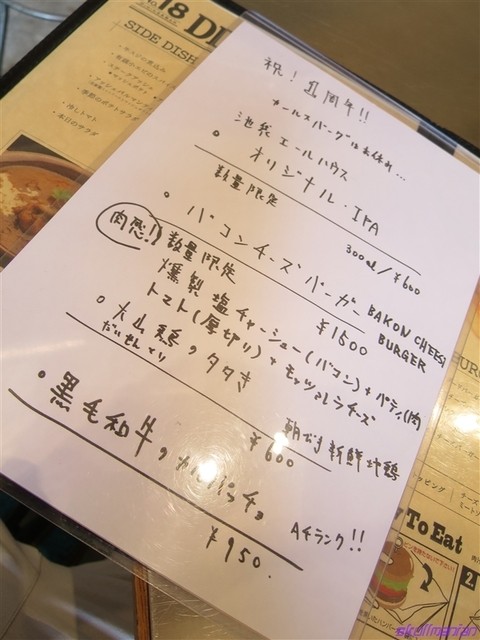 No. 18 DI
SIDE DISH
・冷しトマト
・本日のサラダ
祝！1周年!!
カールスバーグはお休み…
池袋エールハウス
・オリジナル・IPA
数量限定
300ml/¥600
・バコンチーズバーガー BAKON CHEESE BURGER
肉感!! 数量限定
¥1500
燻製塩チャーシュー(バコン)+パティ(肉)
トマト(厚切り)+モッツァレラチーズ
・大山鶏のタタキ
だいせんどり
朝びき新鮮地鶏
¥600
・黒毛和牛のカルパッチョ
A4ランク!!
¥950.
y To Eat
skullmanian